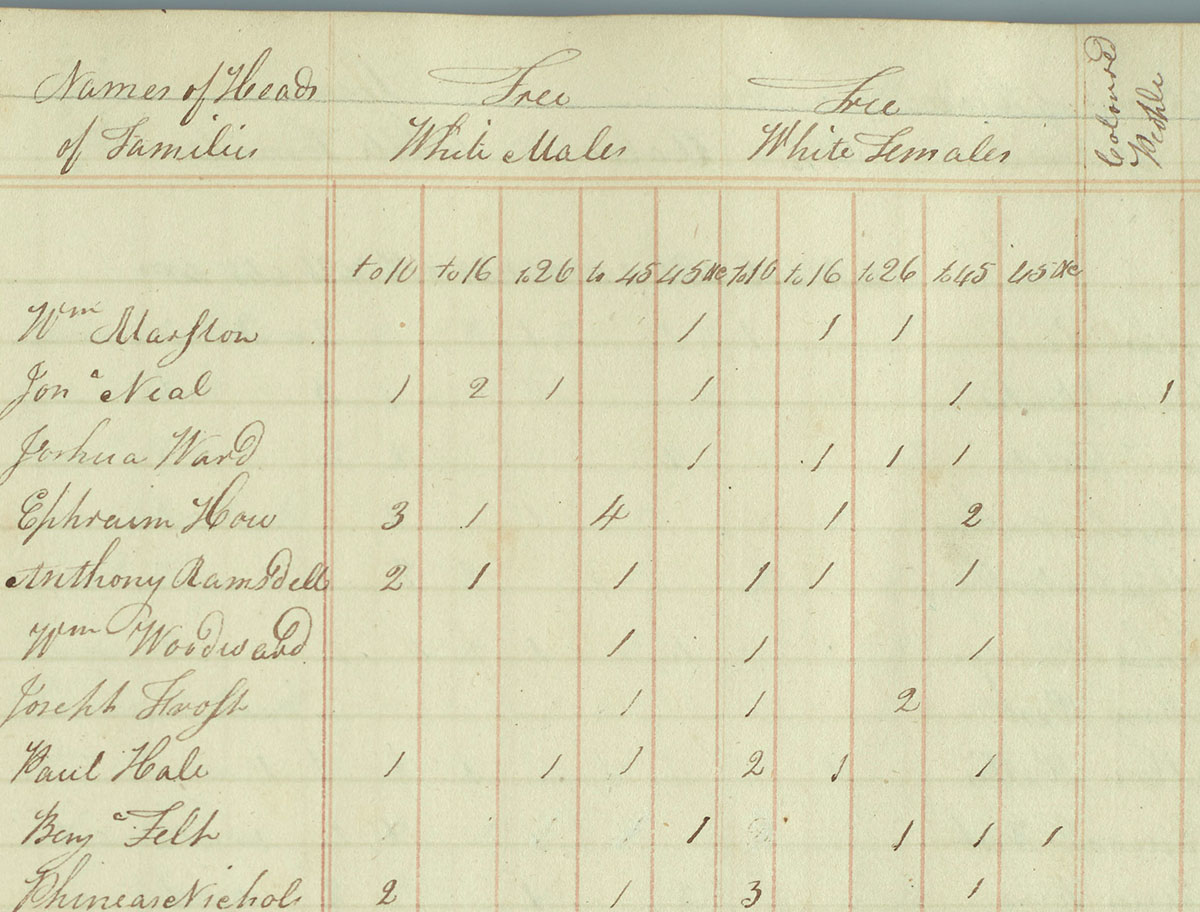 Names of Heads of Families Free White Males Free White Females Coloured People
to 10 to 16 to 26 to 45 45 &c to 10 to 16 to 26 to 45 45 &c
Wm Marston 1 1 1
Jona Neal 1 2 1 1 1 1
Joshua Ward 1 1 1 1
Ephraim How 3 1 4 1 2
Anthony Ramsdell 2 1 1 1 1 1
Wm Woodward 1 1 1
Joseph Frost 1 1 2
Paul Hale 1 1 1 2 1 1
Benja Felt 1 1 1 1
Phineas Nichols 2 1 3 1